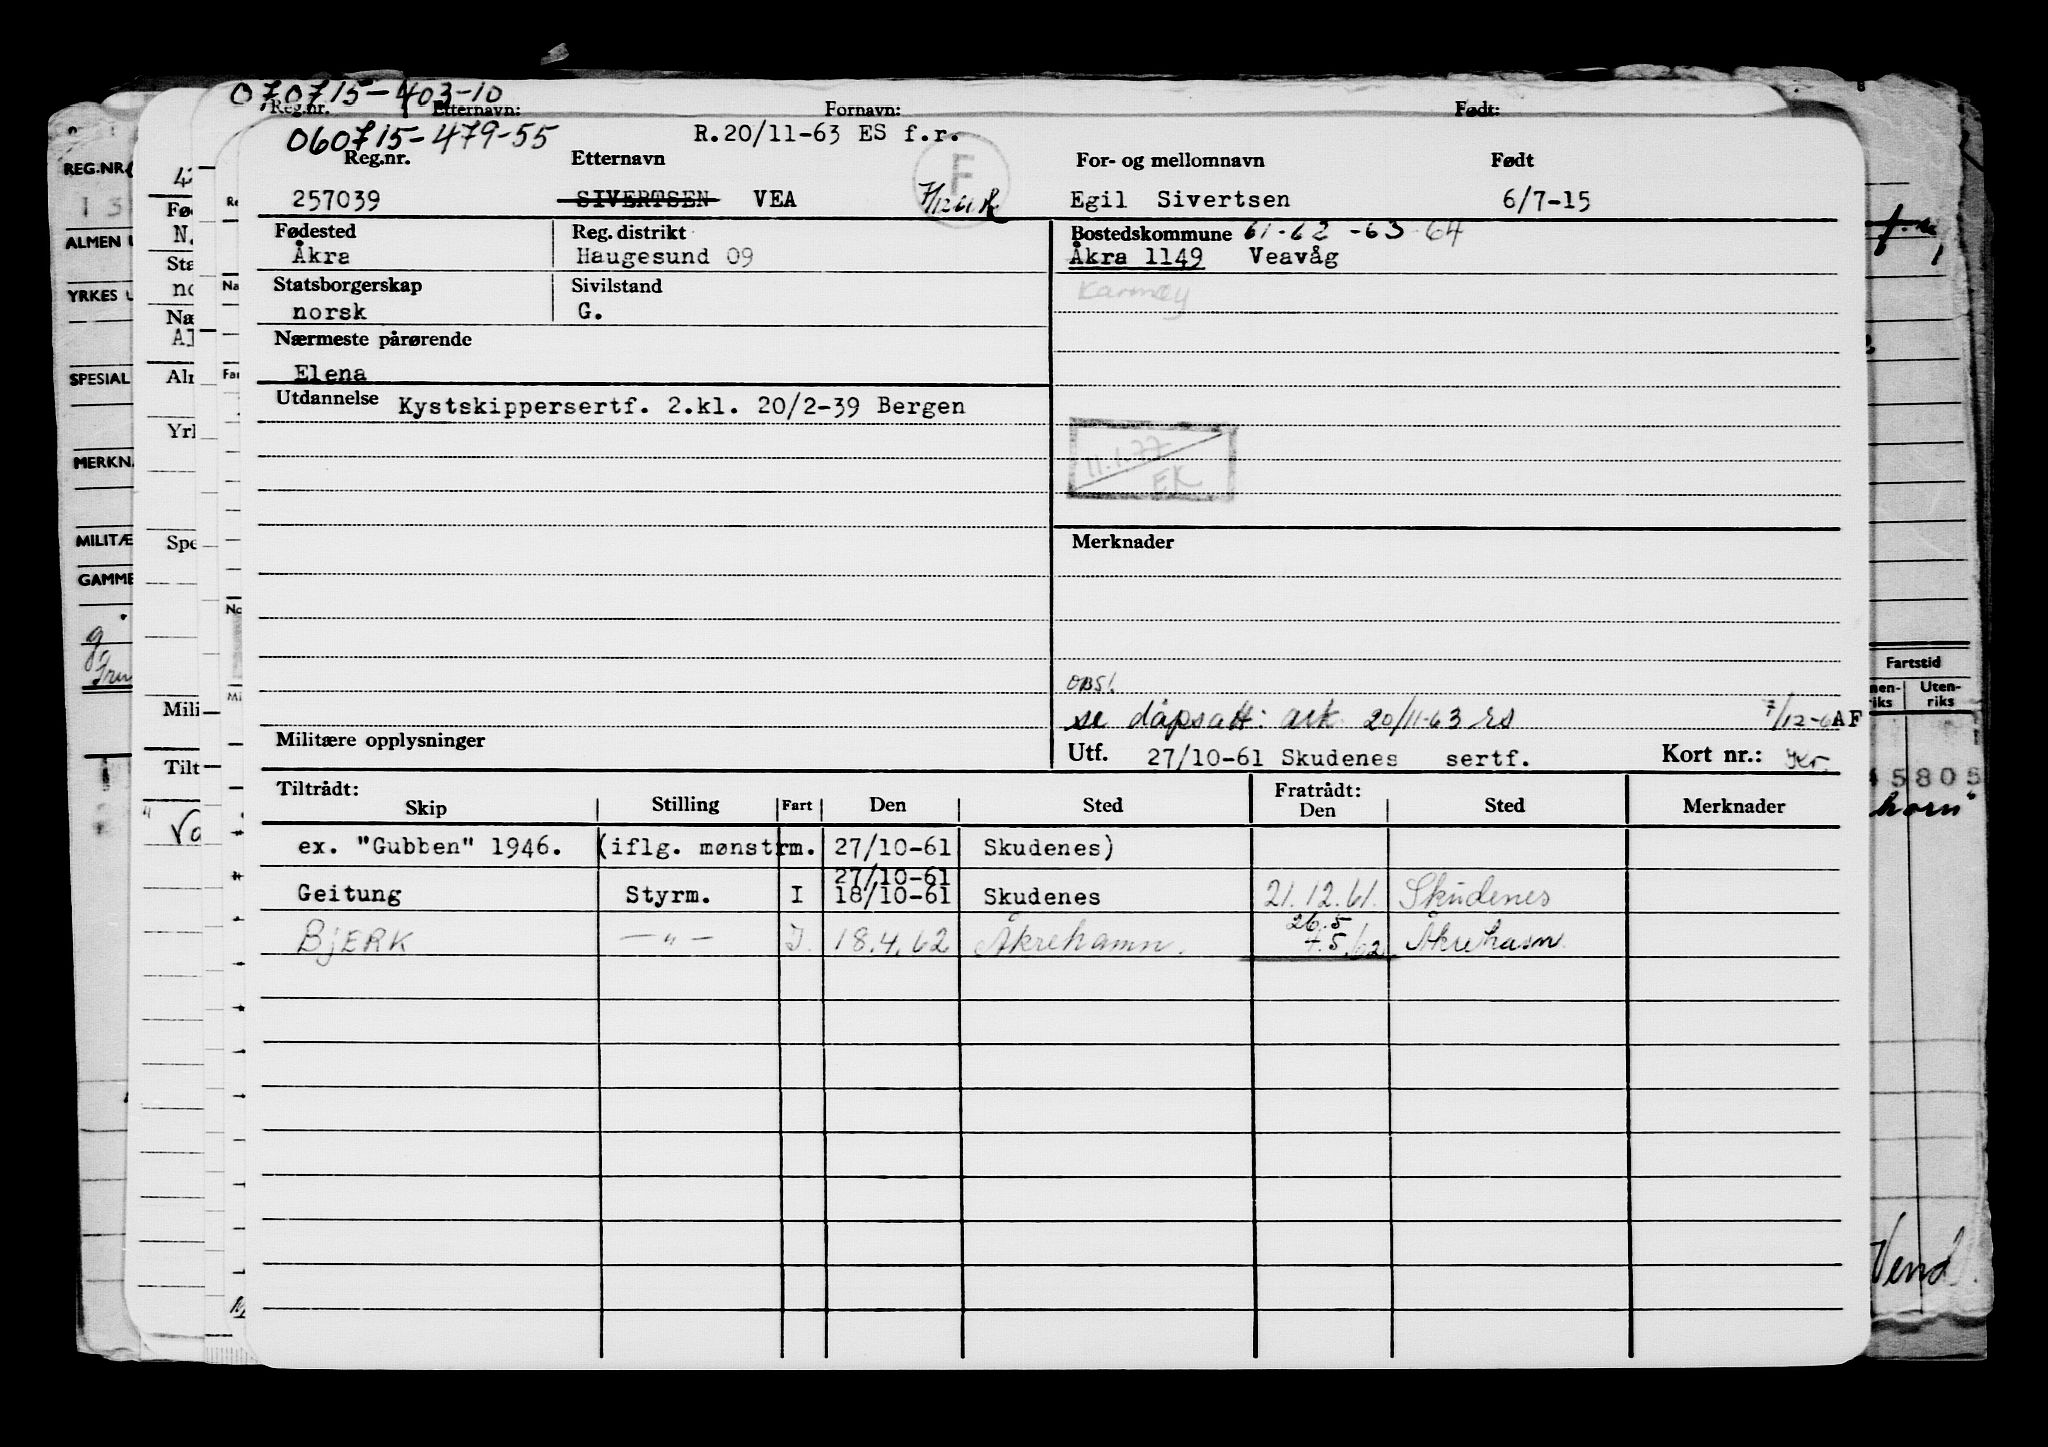 070715-403-10
Reg.nr. Etternavn: Fornavn: Født:
060715-479-55 R.20/11-63 ES f.r.
Reg.nr. Etternavn For- og mellomnavn Født
257039 SIVERTSEN VEA F Egil Sivertsen 6/7-15
Fødested Reg. distrikt Bostedskommune 61-62-63-64
Åkra Haugesund 09 Åkra 1149 Veavåg
Statsborgerskap Sivilstand Karmøy
norsk G.
Nærmeste pårørende
Elena
Utdannelse Kystskippersertf. 2.kl. 20/2-39 Bergen
11.1.77
EK
Merknader
OBS!
se dåpsatt: ark 20/11-63 rs AF
Militære opplysninger Utf. 27/10-61 Skudenes sertf. Kort nr.:
Tiltrådt: Fratrådt:
Skip Stilling Fart Den Sted Den Sted Merknader
ex. "Gubben" 1946. (iflg. mønstrm. 27/10-61 Skudenes)
27/10-61
Geitung Styrm. I 18/10-61 Skudenes 21.12.61. Skudenes
26.5
BJERK —"— I. 18.4.62 Åkrehamn. 4.5.62 Åkrehamn.
REG.NR.
ALMEN
YRKES
SPESIAL
MERKN
MILITÆ
GAMME
Fartstid
Uten-
riks
45805
horn"
Vend